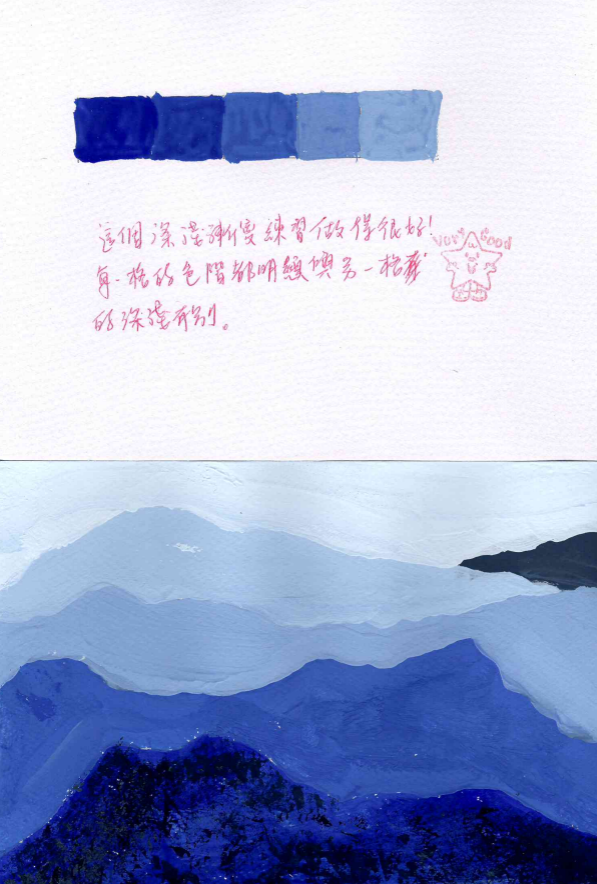 這個深淺漸變練習做得很好!
VERY GOOD
每一格的色階都明經與另一格
的深淺有別。